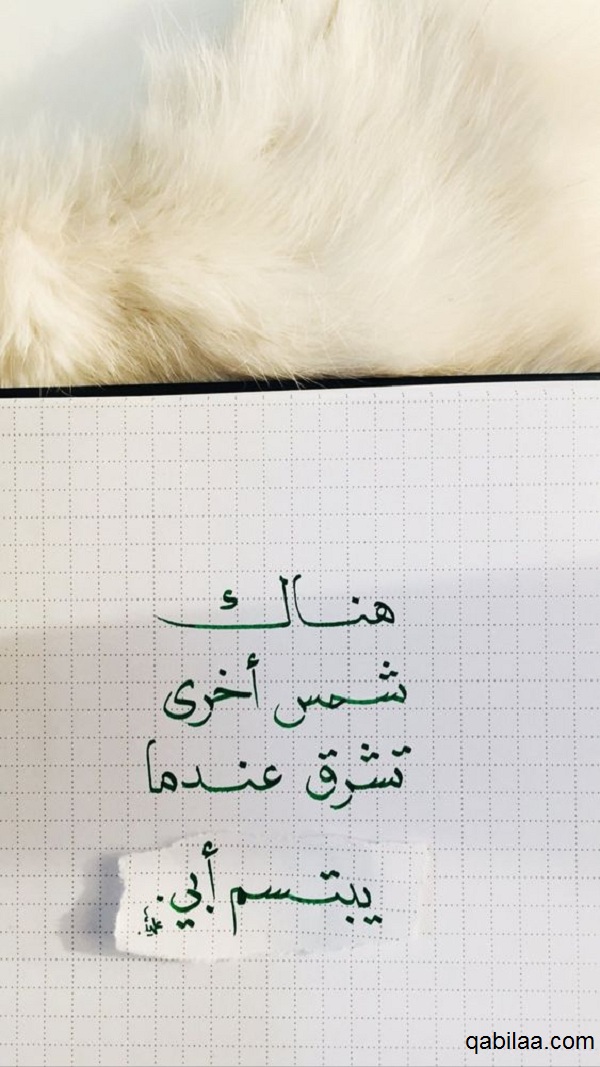 هناك
شمس أخرى
تشرق عندما
يبتسم أبي.
qabilaa.com